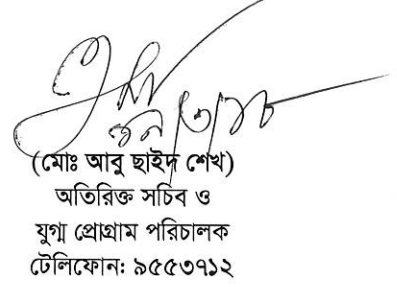 (মোঃ আবু ছাইদ শেখ)
অতিরিক্ত সচিব ও
যুগ্ম প্রোগ্রাম পরিচালক
টেলিফোন: ৯৫৫৩৭১২